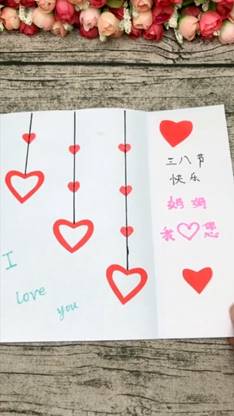 三八节
快乐
妈妈
我♡您
I
love
you